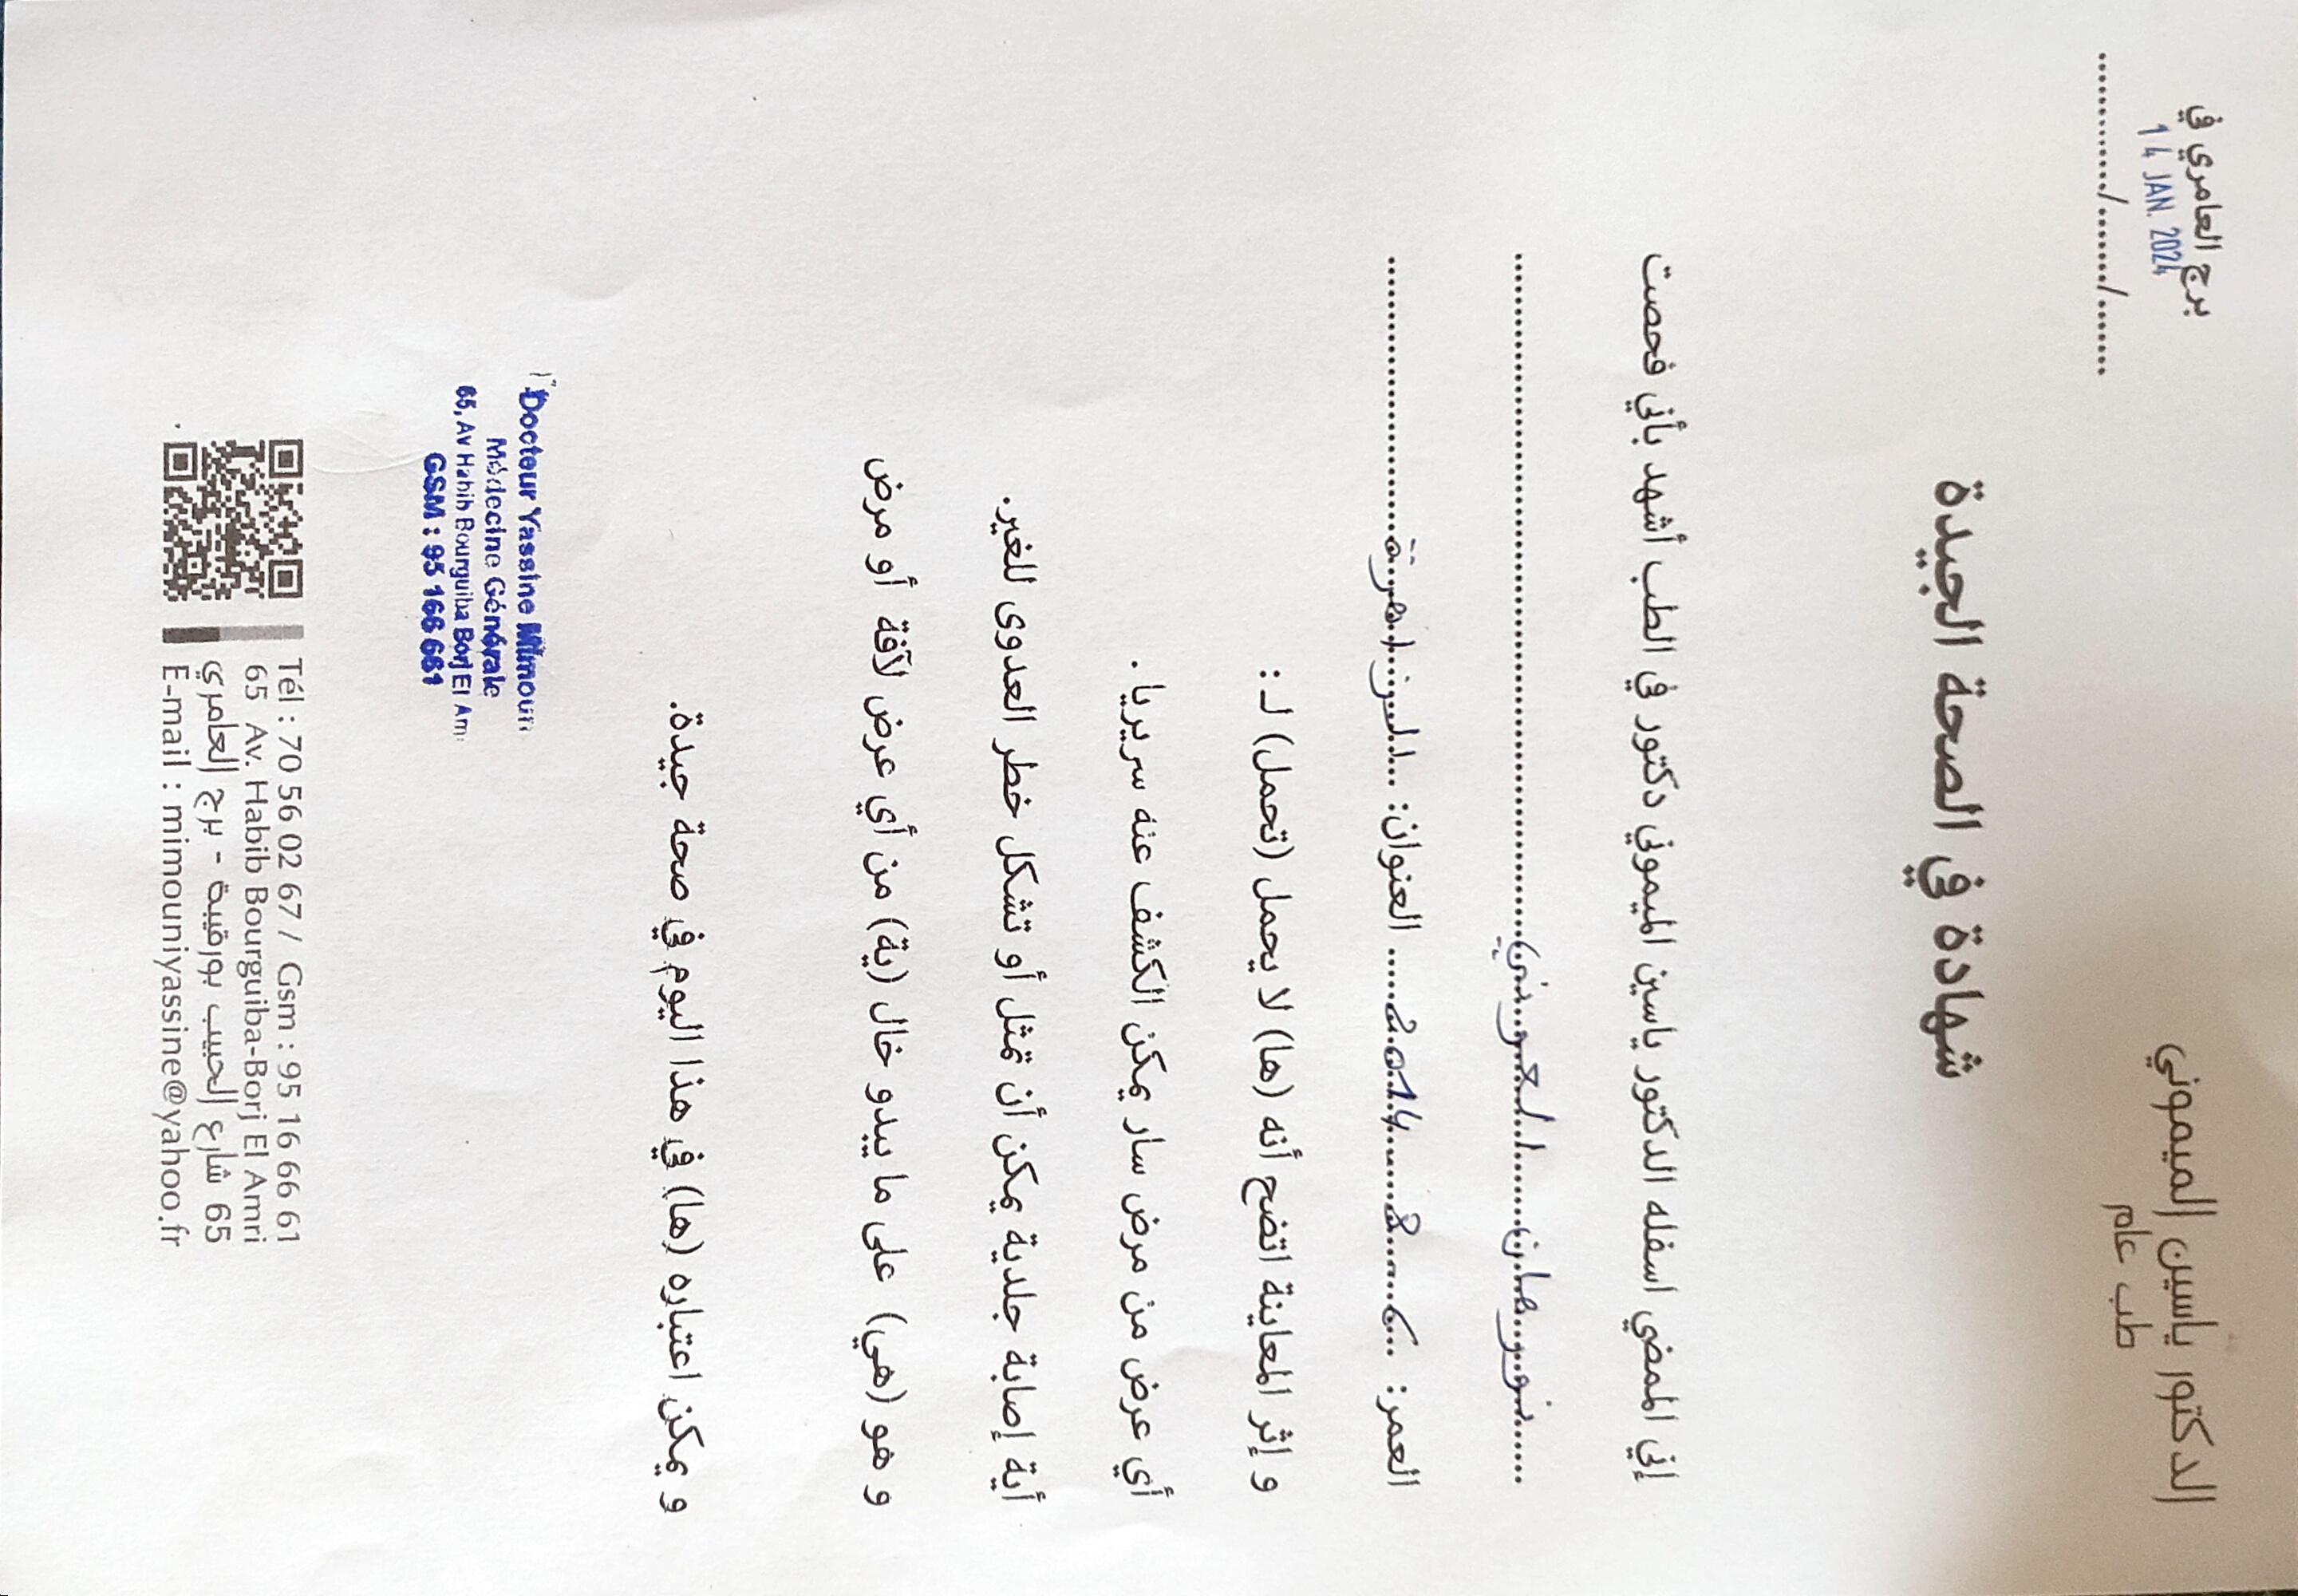 الدكتور ياسين الميموني
طب عام
برج العامري في
14 JAN. 2024
........../......./.......
شهادة في الصحة الجيدة
إني الممضي اسفله الدكتور ياسين الميموني دكتور في الطب أشهد بأني فحصت
نورهان العوني
العمر: 2014 العنوان: الزاهرة
و إثر المعاينة اتضح أنه (ها) لا يحمل (تحمل) لـ :
أي عرض من مرض سار يمكن الكشف عنه سريريا .
أية إصابة جلدية يمكن أن تمثل أو تشكل خطر العدوى للغير.
و هو (هي) على ما يبدو خال (ية) من أي عرض لآفة أو مرض
و يمكن اعتباره (ها) في هذا اليوم في صحة جيدة.
Docteur Yassine Mimoun
Médecine Générale
65, Av Habib Bourguiba Borj El Am
GSM : 95 166 661
Tél : 70 56 02 67 / Gsm : 95 16 66 61
65 Av. Habib Bourguiba-Borj El Amri
65 شارع الحبيب بورقيبة - برج العامري
E-mail : mimouniyassine@yahoo.fr